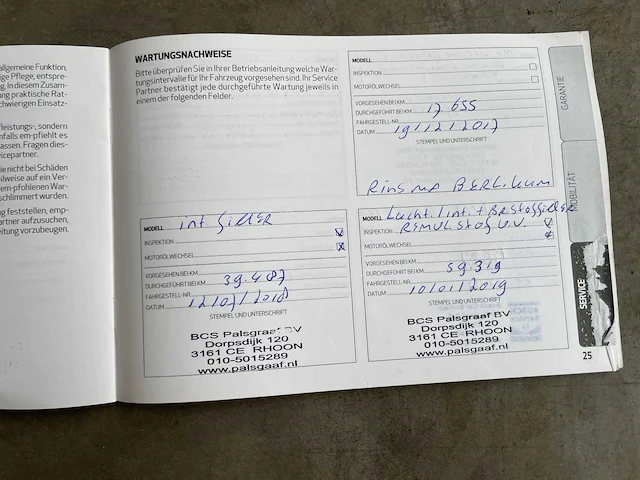 allgemeine Funktion,
ige Pflege, entspre-
g. In diesem Zusam-
ung praktische Rat-
chwierigen Einsatz-
fleistungs-, sondern
nfalls em-pfiehlt es
assen. Fragen dies-
vicepartner.
ie nicht bei Schäden
eilweise auf ein Ver-
em-pfohlenen War-
schlimmert wurden.
g feststellen, emp-
artner aufzusuchen,
eitung vorzubeugen.
WARTUNGSNACHWEISE
Bitte überprüfen Sie in Ihrer Betriebsanleitung welche War-
tungsintervalle für Ihr Fahrzeug vorgesehen sind. Ihr Service
Partner bestätigt jede durchgeführte Wartung jeweils in
einem der folgenden Felder.
MODELL
INSPEKTION
MOTORÖLWECHSEL
VORGESEHEN BEI KM
DURCHGEFÜHRT BEI KM 17 655
FAHRGESTELL-NR.
DATUM 19/12/2017
STEMPEL UND UNTERSCHRIFT
Rinsma BERLIKUM
MODELL int Filter
INSPEKTION x
MOTORÖLWECHSEL x
VORGESEHEN BEI KM
DURCHGEFÜHRT BEI KM 39.487
FAHRGESTELL-NR.
DATUM 12/07/2018
STEMPEL UND UNTERSCHRIFT
BCS Palsgraaf BV
Dorpsdijk 120
3161 CE RHOON
010-5015289
www.palsgaaf.nl
MODELL Lucht.int. + BRstoffilter
INSPEKTION REMVLStof V.V. x
MOTORÖLWECHSEL x
VORGESEHEN BEI KM
DURCHGEFÜHRT BEI KM 59.319
FAHRGESTELL-NR.
DATUM 10/01/2019
STEMPEL UND UNTERSCHRIFT
BCS Palsgraaf BV
Dorpsdijk 120
3161 CE RHOON
010-5015289
www.palsgaaf.nl
GARANTIE
MOBILITÄT
SERVICE
25